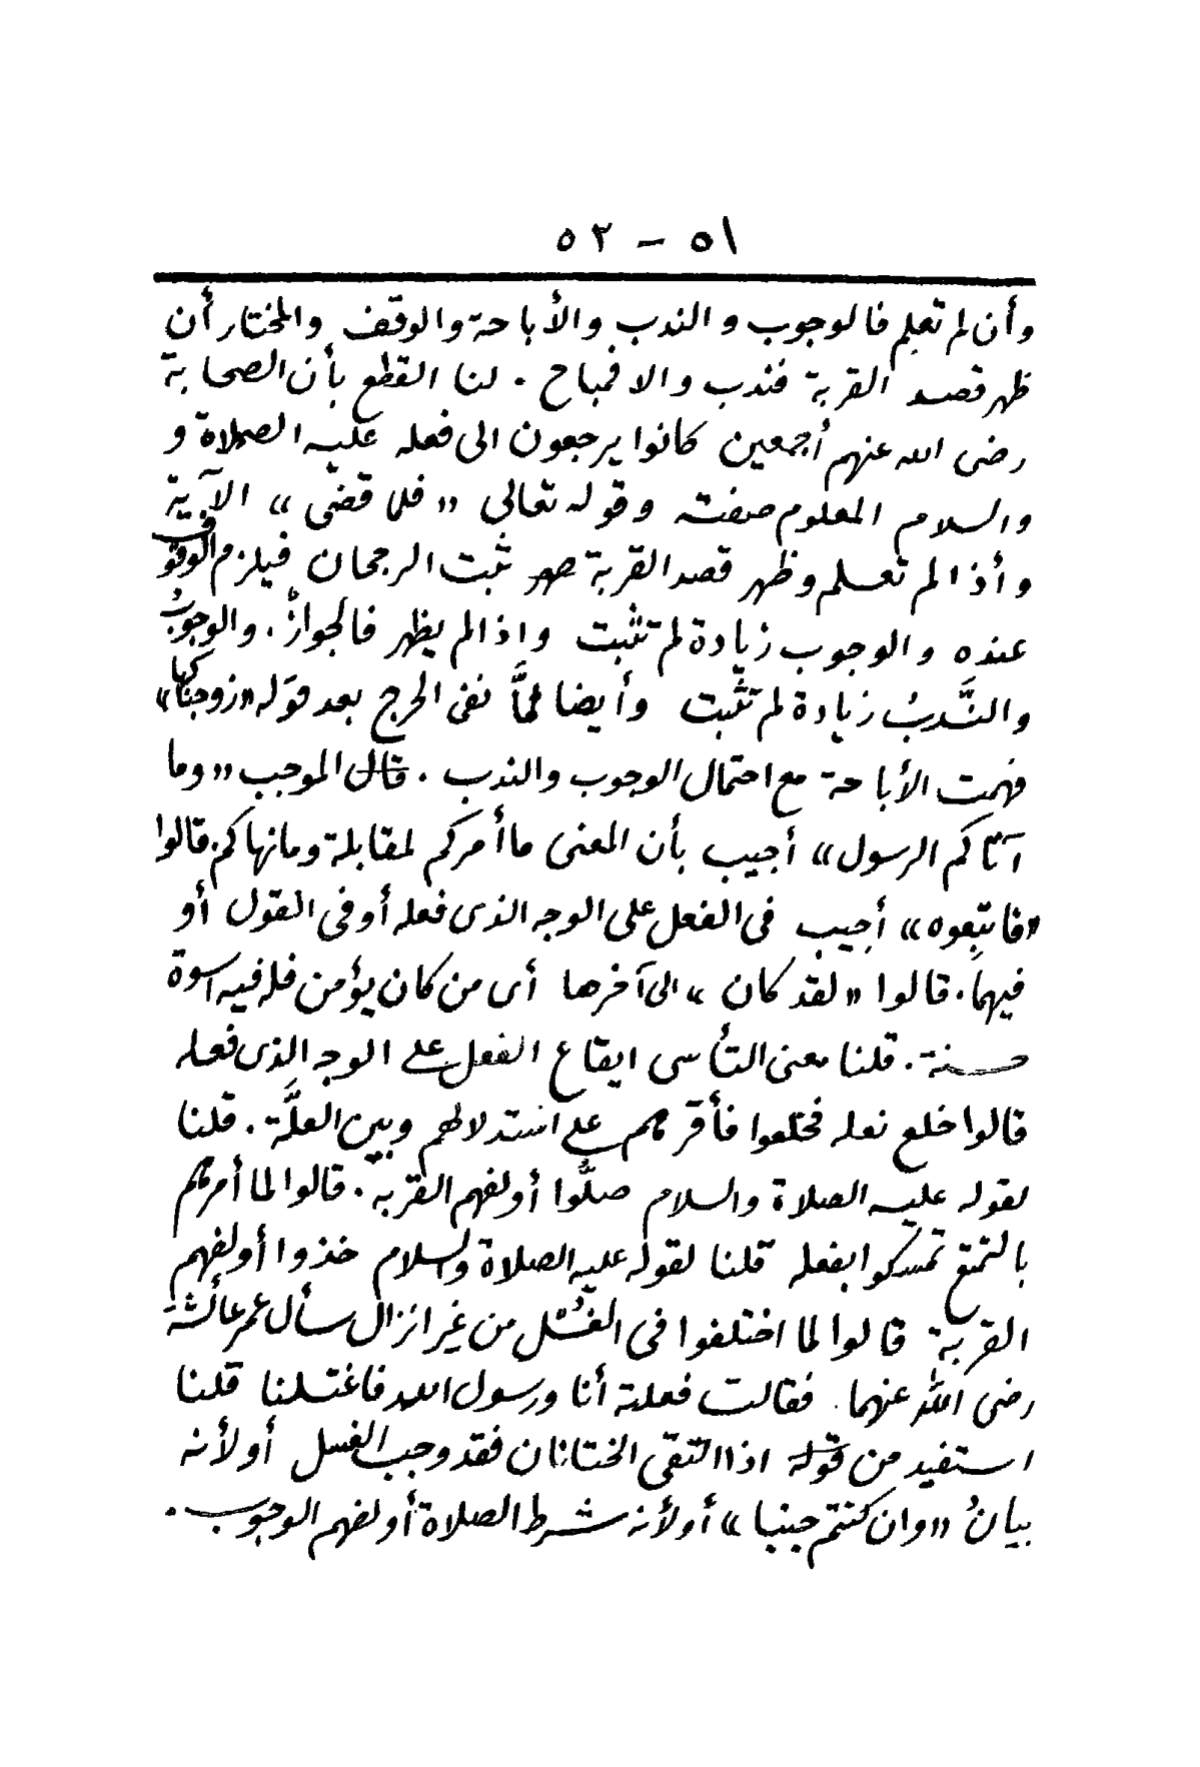 ٥١ – ٥٢
وأن لم تعلم فالوجوب والندب والأباحة والوقف والمختار أن
ظهر قصد القربة فندب والا فمباح . لنا القطع بأن الصحابة
رضى الله عنهم أجمعين كانوا يرجعون الى فعله عليه الصلاة و
والسلام المعلوم صفته وقوله تعالى « فلما قضى » الآية
وأذا لم تعلم وظهر قصد القربة ثبت الرجحان فيلزم الوقوف
عنده والوجوب زيادة لم تثبت واذا لم يظهر فالجواز . والوجوبُ
والنَّدبُ زيادة لم تثبت وأيضا لمَّا نفى الحرج بعد قوله « زوجناكها »
فهمت الأباحة مع احتمال الوجوب والندب . قال الموجب « وما
آتاكم الرسول » أجيب بأن المعنى ما أمركم لمقابلة وما نهاكم . قالوا
« فاتبعوه » أجيب فى الفعل على الوجه الذى فعله أو فى القول أو
فيهما . قالوا « لقد كان » الى آخرها أى من كان يؤمن فله فيه اسوة
حسنة . قلنا معنى التأسى ايقاع الفعل على الوجه الذى فعله
قالوا خلع نعله فخلعوا فأقرهم على استدلالهم وبين العلَّة . قلنا
لقوله عليه الصلاة والسلام صلُّوا أو لفهم القربة . قالوا لما أمرهم
بالتمتع تمسكوا بفعله قلنا لقوله عليه الصلاة والسلام خذوا أو لفهم
القربة قالوا لما اختلفوا فى الغُسْل من غير انزال سأل عمر عائشة
رضى الله عنهما . فقالت فعلته أنا ورسول الله فاغتسلنا قلنا
استفيد من قوله اذا التقى الختانان فقد وجب الغسل أو لأنه
بيانُ « وان كنتم جنبا » أو لأنه شرط الصلاة أو لفهم الوجوب .